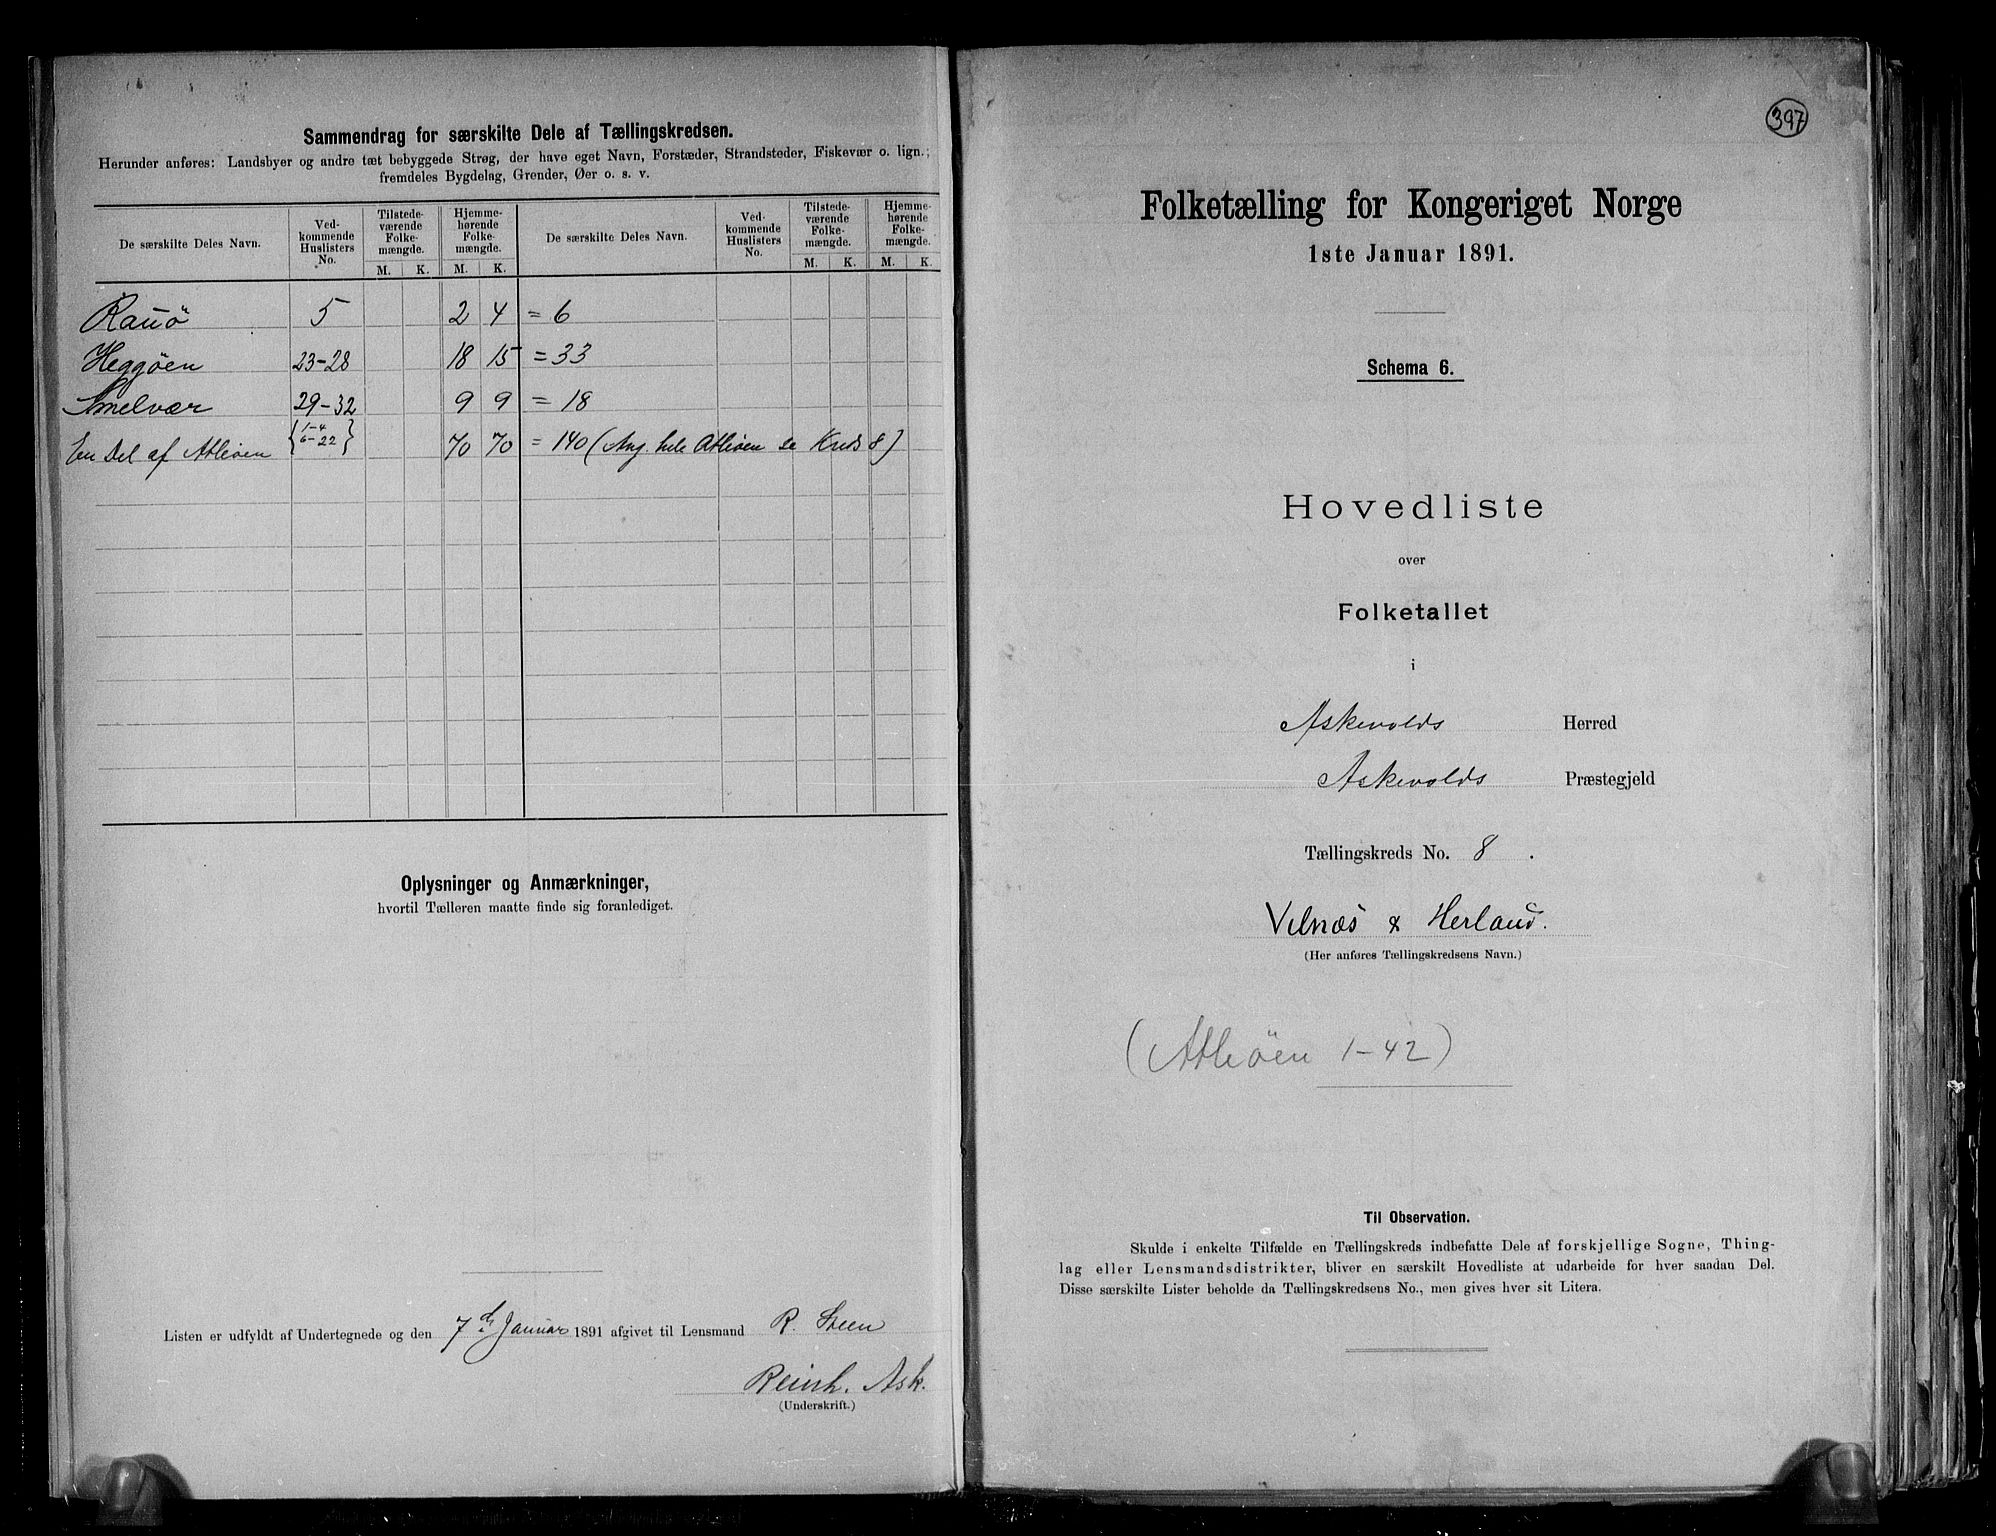 Sammendrag for særskilte Dele af Tællingskredsen.
Herunder anføres: Landsbyer og andre tæt bebyggede Strøg, der have eget Navn, Forstæder, Strandsteder, Fiskevær o. lign.;
fremdeles Bygdelag, Grender, Øer o. s. v.
De særskilte Deles Navn. Ved-kommende Huslisters No. Tilstede-værende Folke-mængde. Hjemme-hørende Folke-mængde. De særskilte Deles Navn. Ved-kommende Huslisters No. Tilstede-værende Folke-mængde. Hjemme-hørende Folke-mængde.
M. K. M. K. M. K. M. K.
Rauø 5 2 4 = 6
Heggøen 23-28 18 15 = 33
Smelvær 29-32 9 9 = 18
En Del af Atleøen {1-4 6-22} 70 70 = 140 (Ang. hele Atleøen se Kreds 8)
Oplysninger og Anmærkninger,
hvortil Tælleren maatte finde sig foranlediget.
Listen er udfyldt af Undertegnede og den 7de Januar 1891 afgivet til Lensmand R. Steen
Reinh. Ask.
(Underskrift.)
397
Folketælling for Kongeriget Norge
1ste Januar 1891.
Schema 6.
Hovedliste
over
Folketallet
i
Askevolds Herred
Askevolds Præstegjeld
Tællingskreds No. 8.
Vilnæs & Herland.
(Her anføres Tællingskredsens Navn.)
(Atleøen 1-42)
Til Observation.
Skulde i enkelte Tilfælde en Tællingskreds indbefatte Dele af forskjellige Sogne, Thing-
lag eller Lensmandsdistrikter, bliver en særskilt Hovedliste at udarbeide for hver saadan Del.
Disse særskilte Lister beholde da Tællingskredsens No., men gives hver sit Litera.